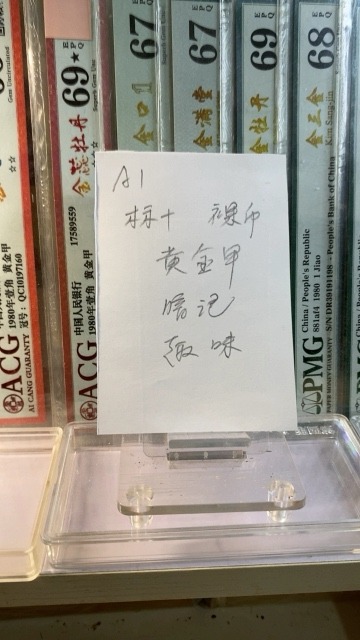 Gem Uncirculated
☆☆
1980年壹角 黄金甲
冠号：QC10197160
ACG
AI CANG GUARANTY
69★ EPQ
金花牡丹
☆☆
17589559
中国人民银行
1980年壹角 黄金甲
ACG
67 EPQ
金口1
67 EPQ
金满堂
69 EPQ
金牡丹
68 EPQ
金三金
Kim Sang-jin
China / People's Republic
881af4 1980 1 Jiao
PMG
PAPER MONEY GUARANTY
S/N DR39191198 - People's Bank of China
A1
标十 裸币
黄金甲
暗记
趣味